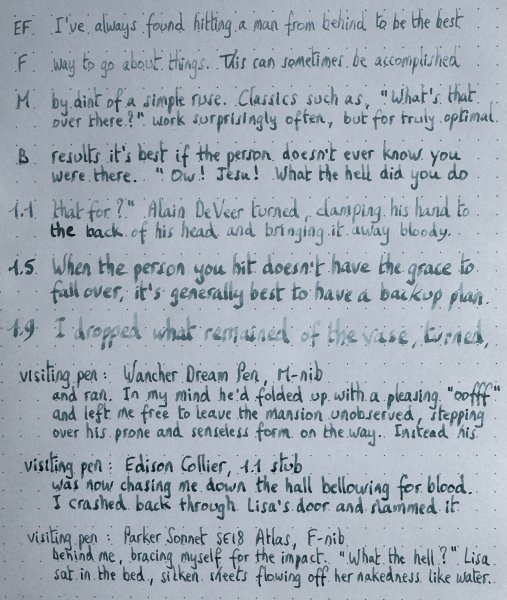 EF. I've always found hitting a man from behind to be the best
F way to go about things. This can sometimes be accomplished
M by dint of a simple ruse. Classics such as, "What's that
over there?" work surprisingly often, but for truly optimal
B results it's best if the person doesn't ever know you
were there. "Ow! Jesu! What the hell did you do
1.1 that for?" Alain DeVeer turned, clamping his hand to
the back of his head and bringing it away bloody.
1.5 When the person you hit doesn't have the grace to
fall over, it's generally best to have a backup plan.
1.9 I dropped what remained of the vase, turned,
visiting pen: Wancher Dream Pen, M-nib
and ran. In my mind he'd folded up with a pleasing "oofff"
and left me free to leave the mansion unobserved, stepping
over his prone and senseless form on the way. Instead his
visiting pen: Edison Collier, 1.1 stub
was now chasing me down the hall bellowing for blood.
I crashed back through Lisa's door and slammed it
visiting pen: Parker Sonnet SE18 Atlas, F-nib
behind me, bracing myself for the impact. "What the hell?" Lisa
sat in the bed, silken sheets flowing off her nakedness like water.